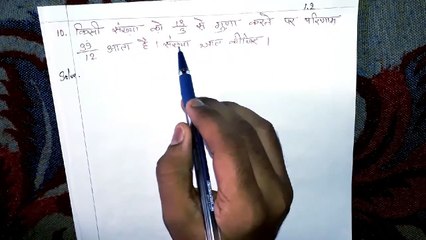 1.2
10. किसी संख्या को 18/5 से गुणा करने पर परिणाम
99/12 आता है। संख्या ज्ञात कीजिए।
Solve.